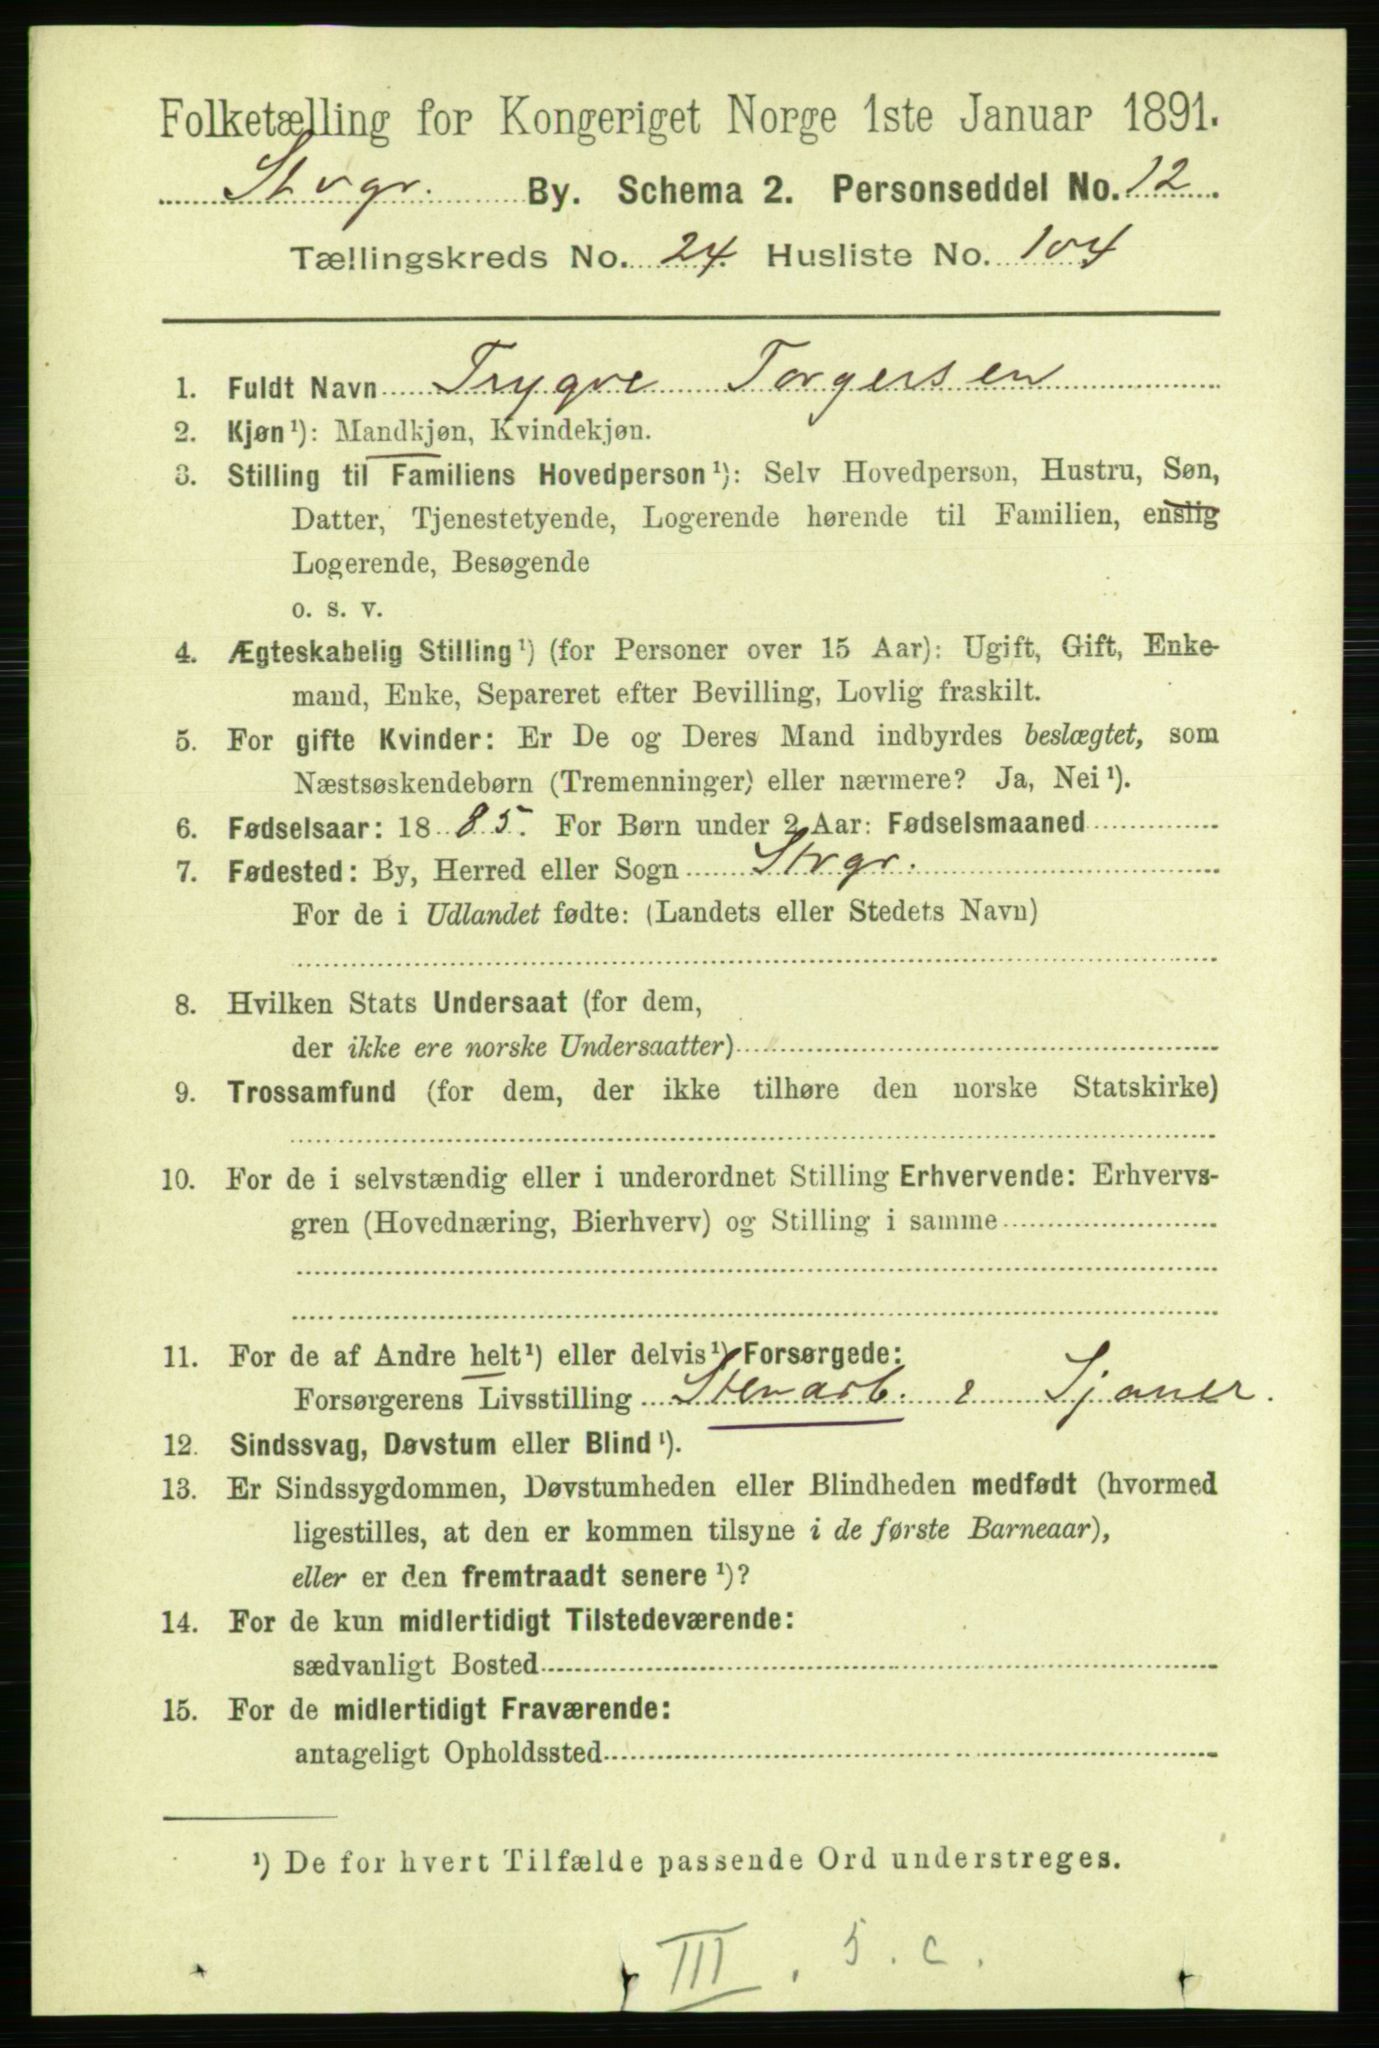 Folketælling for Kongeriget Norge 1ste Januar 1891.
Stvgr. By. Schema 2. Personseddel No. 12.
Tællingskreds No. 24. Husliste No. 104
1. Fuldt Navn Trygve Torgersen
2. Kjøn¹): Mandkjøn, Kvindekjøn.
3. Stilling til Familiens Hovedperson¹): Selv Hovedperson, Hustru, Søn,
Datter, Tjenestetyende, Logerende hørende til Familien, enslig
Logerende, Besøgende
o. s. v.
4. Ægteskabelig Stilling¹) (for Personer over 15 Aar): Ugift, Gift, Enke-
mand, Enke, Separeret efter Bevilling, Lovlig fraskilt.
5. For gifte Kvinder: Er De og Deres Mand indbyrdes beslægtet, som
Næstsøskendebørn (Tremenninger) eller nærmere? Ja, Nei¹).
6. Fødselsaar: 1885. For Børn under 2 Aar: Fødselsmaaned
7. Fødested: By, Herred eller Sogn Stvgr.
For de i Udlandet fødte: (Landets eller Stedets Navn)
8. Hvilken Stats Undersaat (for dem,
der ikke ere norske Undersaatter)
9. Trossamfund (for dem, der ikke tilhøre den norske Statskirke)
10. For de i selvstændig eller i underordnet Stilling Erhvervende: Erhvervs-
gren (Hovednæring, Bierhverv) og Stilling i samme
11. For de af Andre helt¹) eller delvis¹) Forsørgede:
Forsørgerens Livsstilling Stenarb. & Sjauer.
12. Sindssvag, Døvstum eller Blind¹).
13. Er Sindssygdommen, Døvstumheden eller Blindheden medfødt (hvormed
ligestilles, at den er kommen tilsyne i de første Barneaar),
eller er den fremtraadt senere¹)?
14. For de kun midlertidigt Tilstedeværende:
sædvanligt Bosted
15. For de midlertidigt Fraværende:
antageligt Opholdssted
¹) De for hvert Tilfælde passende Ord understreges.
III. 5. c.